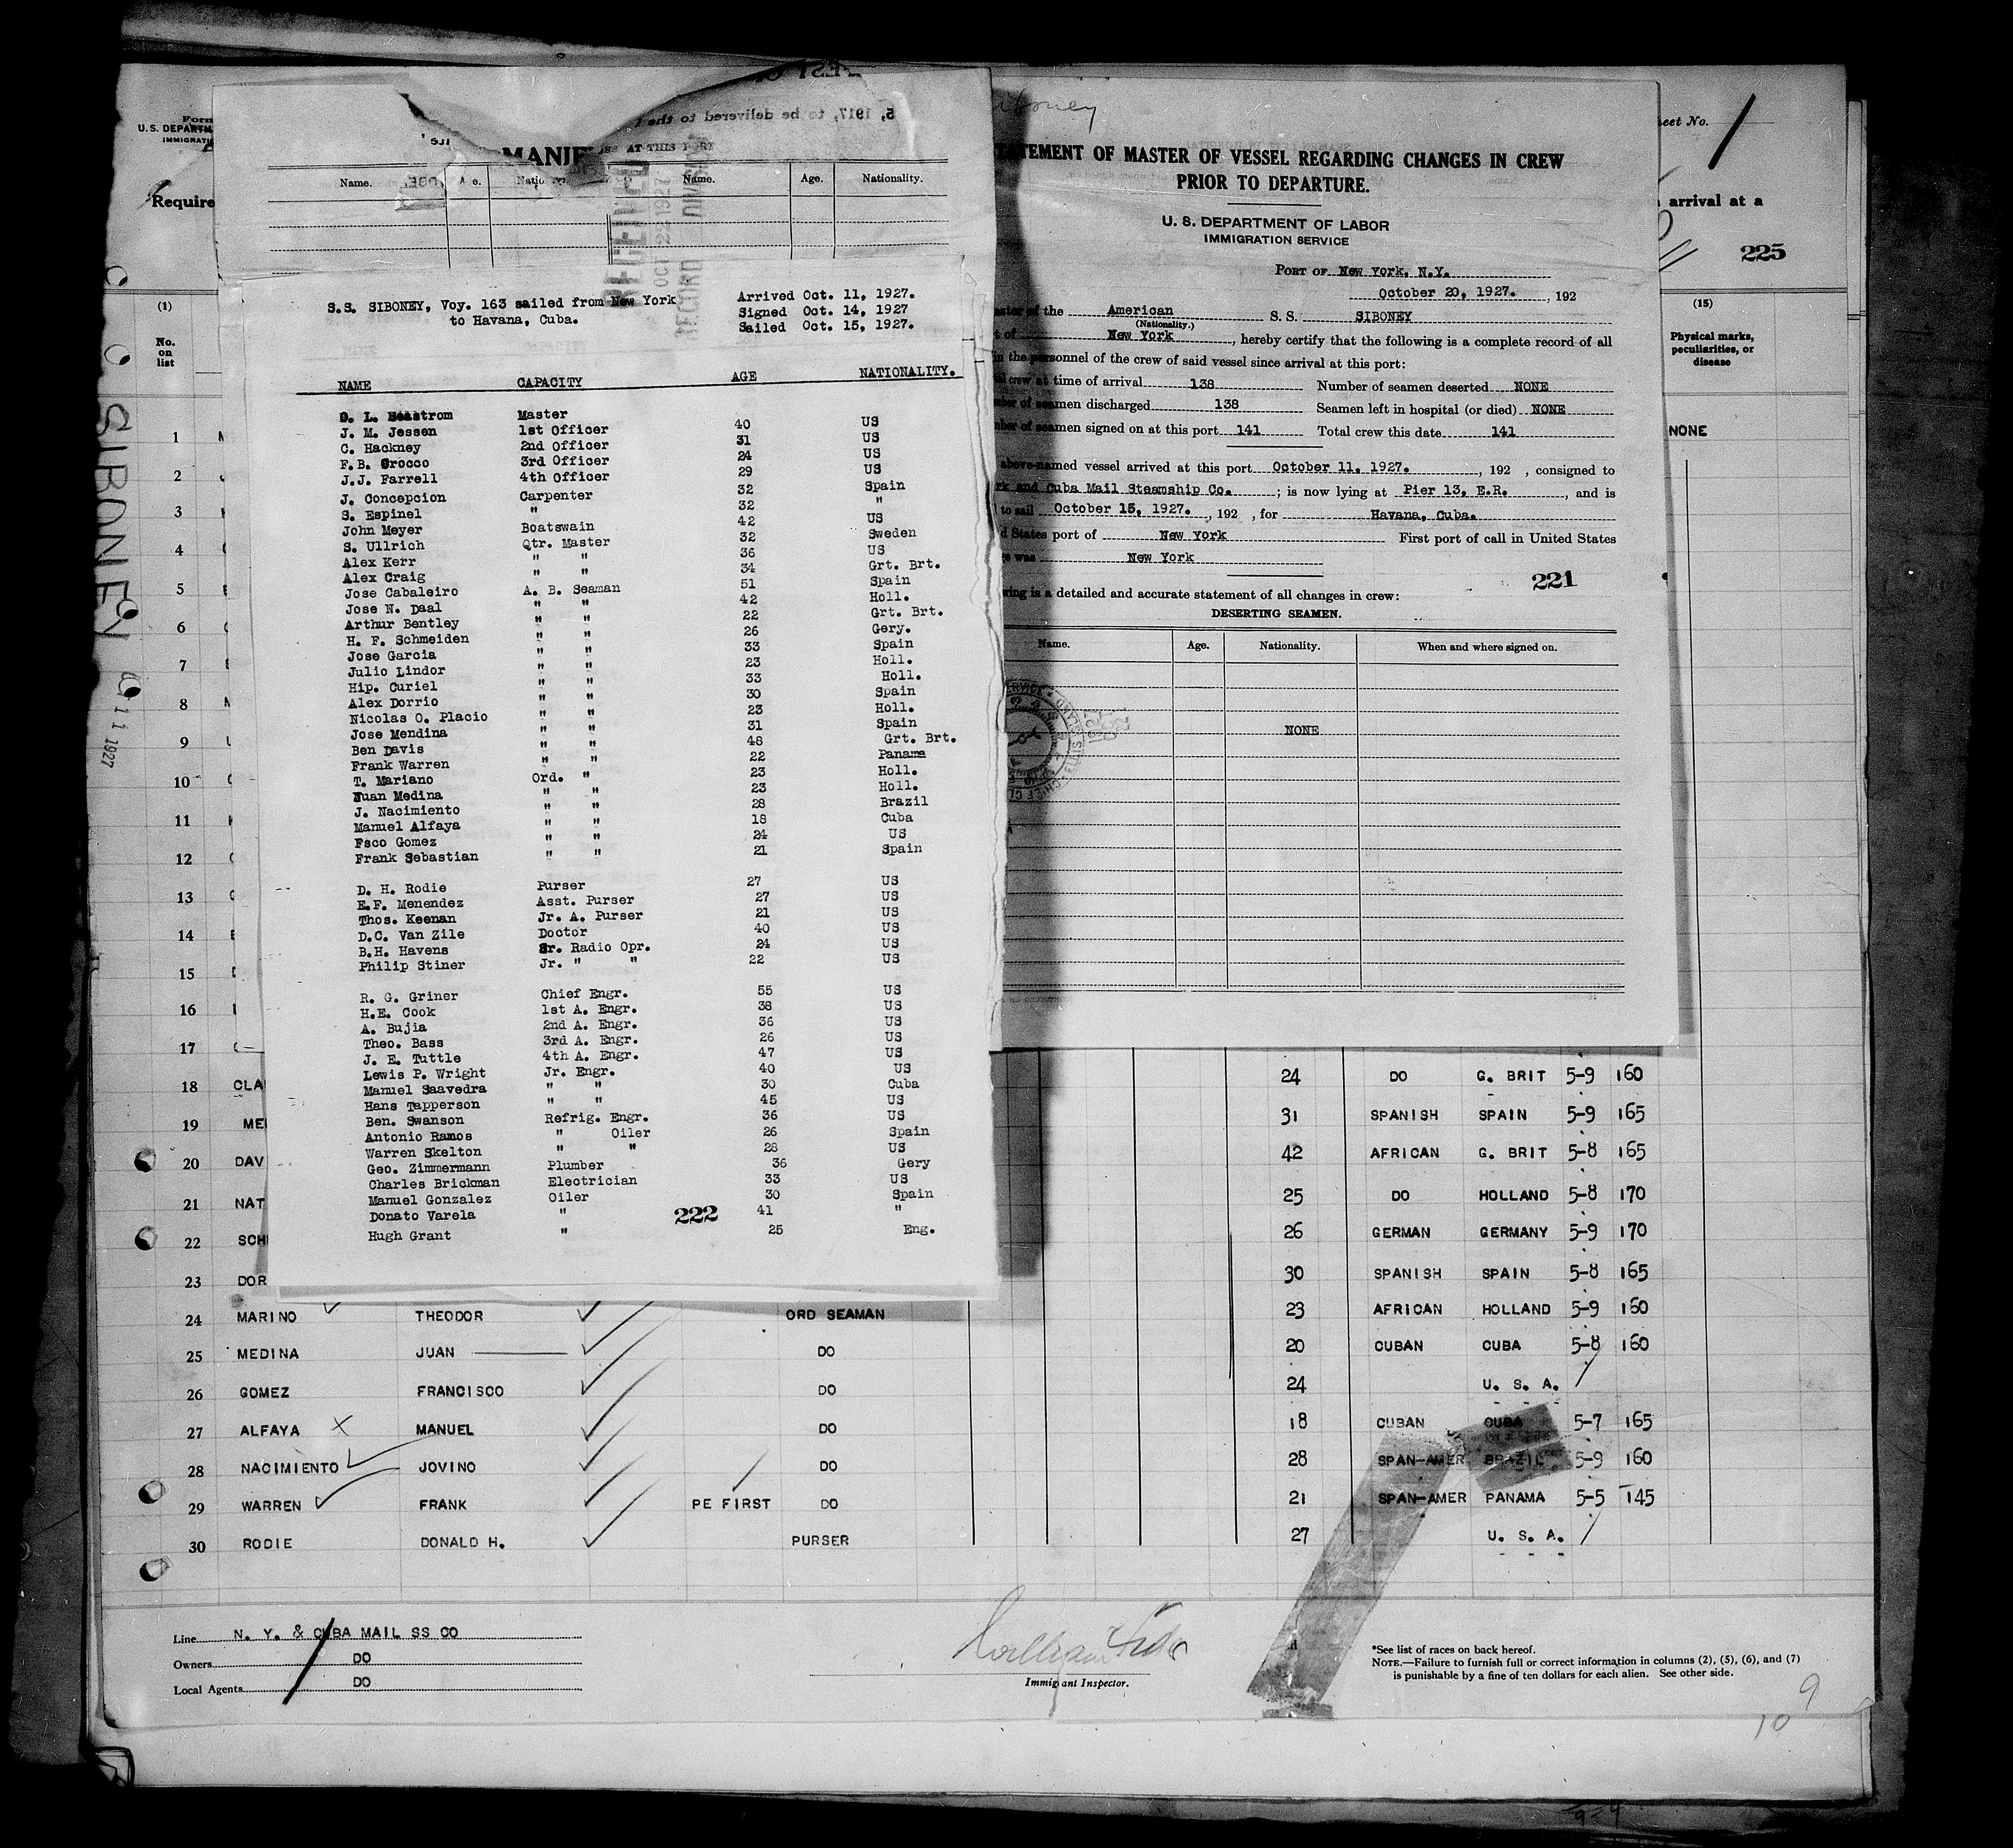 Form
U.S. DEPARTM
IMMIGRATI
Require
(1)
No.
on
list
SIBONEY
11 1927
5, 1917, to be delivered to the
MANIF
AT THIS PORT
Name. Age. Natio Name. Age. Nationality.
RECEIVED
OCT 22 1927
RECORD DIVISION
S.S. SIBONEY, Voy. 163 sailed from New York
to Havana, Cuba.
Arrived Oct. 11, 1927.
Signed Oct. 14, 1927
Sailed Oct. 15, 1927.
NAME CAPACITY AGE NATIONALITY.
D. L. Master
J. M. Jessen 1st Officer 40 US
C. Hackney 2nd Officer 31 US
F.B. Crocco 3rd Officer 24 US
J.J. Farrell 4th Officer 29 US
J. Concepcion Carpenter 32 Spain
S. Espinel " 32 "
John Meyer Boatswain 42 US
S. Ullrich Qtr. Master 32 Sweden
Alex Kerr " " 36 US
Alex Craig " " 34 Grt. Brt.
Jose Cabaleiro A. B. Seaman 51 Spain
Jose N. Daal " " 42 Holl.
Arthur Bentley " " 22 Grt. Brt.
H. F. Schmeiden " " 26 Gery.
Jose Garcia " " 33 Spain
Julio Lindor " " 23 Holl.
Hip. Curiel " " 33 Holl.
Alex Dorrio " " 30 Spain
Nicolas O. Placio " " 23 Holl.
Jose Mendina " " 31 Spain
Ben Davis " " 48 Grt. Brt.
Frank Warren " " 22 Panama
T. Mariano Ord. " 23 Holl.
Juan Medina " " 23 Holl.
J. Nacimiento " " 28 Brazil
Manuel Alfaya " " 18 Cuba
Fsco Gomez " " 24 US
Frank Sebastian " " 21 Spain
D. H. Rodie Purser 27 US
E.F. Menendez Asst. Purser 27 US
Thos. Keenan Jr. A. Purser 21 US
D.C. Van Zile Doctor 40 US
B.H. Havens Sr. Radio Opr. 24 US
Philip Stiner Jr. " " 22 US
R. G. Griner Chief Engr. 55 US
H.E. Cook 1st A. Engr. 38 US
A. Bujia 2nd A. Engr. 36 US
Theo. Bass 3rd A. Engr. 26 US
J. E. Tuttle 4th A. Engr. 47 US
Lewis P. Wright Jr. Engr. 40 US
Manuel Saavedra " " 30 Cuba
Hans Tapperson " " 45 US
Ben. Swanson Refrig. Engr. 36 US
Antonio Ramos " Oiler 26 Spain
Warren Skelton " " 28 US
Geo. Zimmermann Plumber 36 Gery
Charles Brickman Electrician 33 US
Manuel Gonzalez Oiler 30 Spain
Donato Varela " 41 "
222
Hugh Grant " 25 Eng.
iboney
TATEMENT OF MASTER OF VESSEL REGARDING CHANGES IN CREW
PRIOR TO DEPARTURE.
U. S. DEPARTMENT OF LABOR
IMMIGRATION SERVICE
PORT OF New York, N.Y.
October 20, 1927. , 192
aster of the American S. S. SIBONEY
(Nationality.)
t of New York , hereby certify that the following is a complete record of all
in the personnel of the crew of said vessel since arrival at this port:
crew at time of arrival 138 Number of seamen deserted NONE
mber of seamen discharged 138 Seamen left in hospital (or died) NONE
mber of seamen signed on at this port 141 Total crew this date 141
above-named vessel arrived at this port October 11, 1927. , 192 , consigned to
rk and Cuba Mail Steamship Co. ; is now lying at Pier 13, E.R. , and is
to sail October 15, 1927. , 192 , for Havana, Cuba.
d States port of New York First port of call in United States
e was New York
221
wing is a detailed and accurate statement of all changes in crew:
DESERTING SEAMEN.
Name. Age. Nationality. When and where signed on.
NONE
eet No. 1
arrival at a
225
(15)
Physical marks,
peculiarities, or
disease
NONE
1
2
3
4
5
6
7
8
9
10
11
12
13
14
15
16
17
18 CLA 24 DO G. BRIT 5-9 160
19 ME 31 SPANISH SPAIN 5-9 165
20 DAV 42 AFRICAN G. BRIT 5-8 165
21 NAT 25 DO HOLLAND 5-8 170
22 SCH 26 GERMAN GERMANY 5-9 170
23 DOR 30 SPANISH SPAIN 5-8 165
24 MARINO THEODOR ORD SEAMAN 23 AFRICAN HOLLAND 5-9 160
25 MEDINA JUAN DO 20 CUBAN CUBA 5-8 160
26 GOMEZ FRANCISCO DO 24 U. S. A.
27 ALFAYA X MANUEL DO 18 CUBAN CUBA 5-7 165
28 NACIMIENTO JOVINO DO 28 SPAN-AMER BRAZIL 5-9 160
29 WARREN FRANK PE FIRST DO 21 SPAN-AMER PANAMA 5-5 145
30 RODIE DONALD H. PURSER 27 U. S. A.
Line N. Y. & CUBA MAIL SS CO
Owners DO
Local Agents DO
Immigrant Inspector.
*See list of races on back hereof.
NOTE.—Failure to furnish full or correct information in columns (2), (5), (6), and (7)
is punishable by a fine of ten dollars for each alien. See other side.
9
10